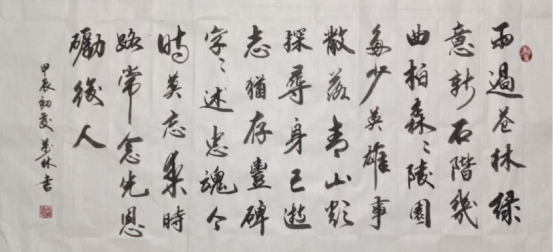 雨過蒼林綠
意新石階幾
曲柏森々陵園
多少英雄事
散落青山
探尋身已逝
志猶存豐碑
字々述忠魂今
時莫忘來時
路常念先恩
礪後人
甲辰初夏 林書